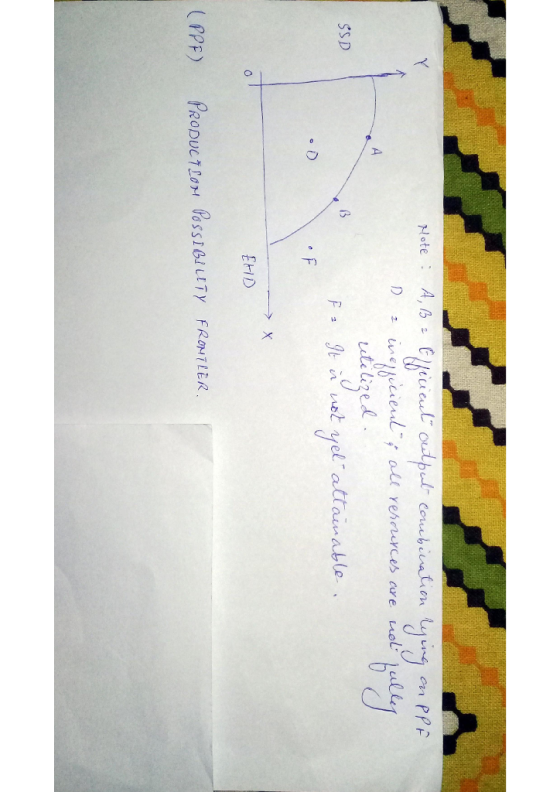 Y
SSD
A
B
D
F
O
EHD
X
Note : A, B = Efficient output combination lying on PPF
D = inefficient ; all resources are not fully
utilized.
F = It is not yet attainable.
(PPF) PRODUCTION POSSIBILITY FRONTIER.